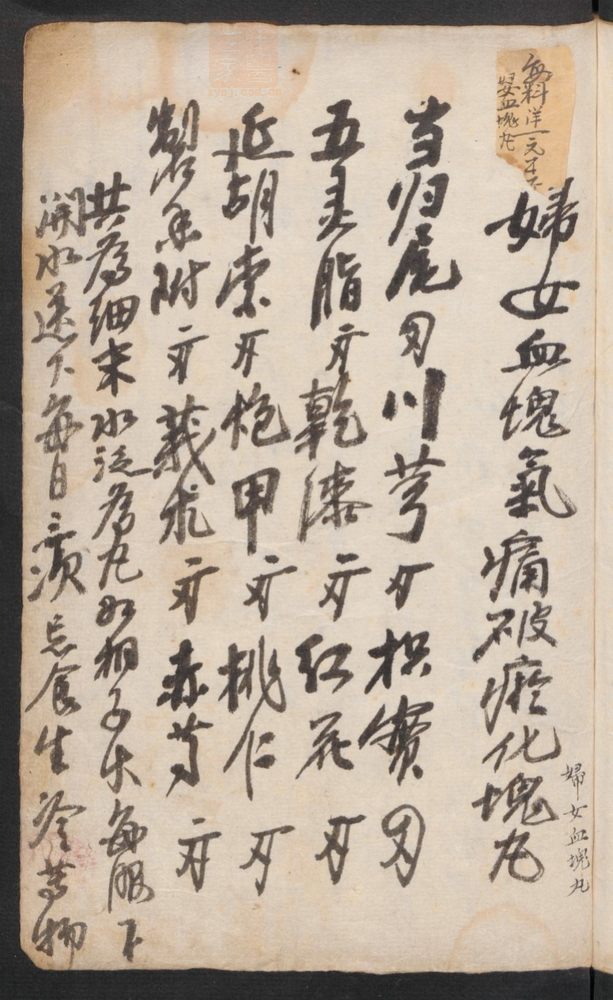 每料洋一元
婦女血塊丸
婦女血塊氣痛破瘀化塊丸
婦女血塊丸
当归尾 川芎 枳實
五灵脂 乾漆 红花
延胡索 炮甲 桃仁
製香附 莪朮 赤芍
共為細末水泛為丸如梧子大每服
開水送下每日二次忌食生冷等物